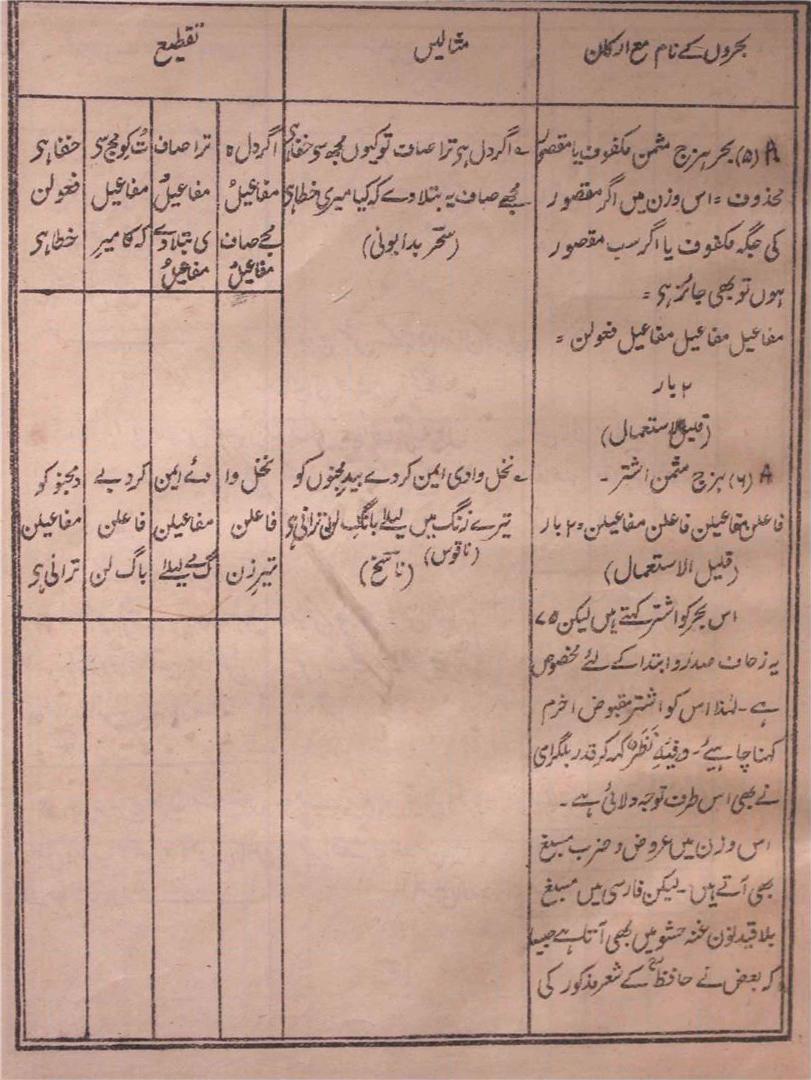 بحروں کے نام مع ارکان
مثالیں
تقطیع
A (۵) بحر ہزج مثمن مکفوف یا مقصور
محذوف = اس وزن میں اگر مقصور
کی جگہ مکفوف یا اگر سب مقصور
ہوں تو بھی جائز ہی =
مفاعیل مفاعیل مفاعیل فعولن =
۲ بار
(قلیل الاستعمال)
A (۶) ہزج مثمن اشتر -
فاعلن مفاعیلن فاعلن مفاعیلن = ۲ بار
(قلیل الاستعمال)
اس بحر کو اشتر کہتے ہیں لیکن ۷۵
یہ زحاف صدر و ابتدا کے لئے مخصوص
ہے - لہٰذا اس کو اشتر مقبوض اخرم
کہنا چاہیئے - و فیہِ نَظَرٌ کہہ کر قدر بلگرامی
نے بھی اس طرف توجہ دلائی ہے -
اس وزن میں عروض و ضرب مسبغ
بھی آتے ہیں - لیکن فارسی میں مسبغ
بلا قید نون غنہ حشو میں بھی آتا ہے جیسا
کہ بعض نے حافظ کے شعر مذکور کی
اگر دل ہی ترا صاف تو کیوں مجھ سی خفا ہی
مجھے صاف یہ بتلا دے کہ کیا میری خطا ہی
(سحر بدایونی)
نخل وادی ایمن کر دے بیدِ مجنوں کو
تیرے رنگ میں لیلےٰ بانگِ لن ترانی ہو
(ناقوس) (ناسخ)
اگر دل ہ | ترا صاف | تُ کو مج سی | خفا ہی
مفاعیلُ | مفاعیلُ | مفاعیل | فعولن
مجے صاف | ی بتلا دے | کہ کا میر | خطا ہی
مفاعیلُ | مفاعیلُ
نخل وا | دئے ایمن | کر د بے | د مجنو کو
فاعلن | مفاعیلن | فاعلن | مفاعیلن
تیر زن | گ مے لیلا | باگ لن | ترانی ہو